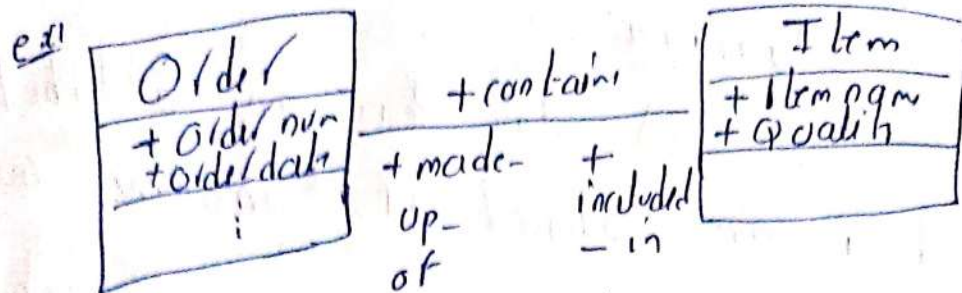 ex1
Order
+ Order num
+ order date
:
+ contains
+ made-
up-
of
+
included
- in
Item
+ Item nam
+ Quality